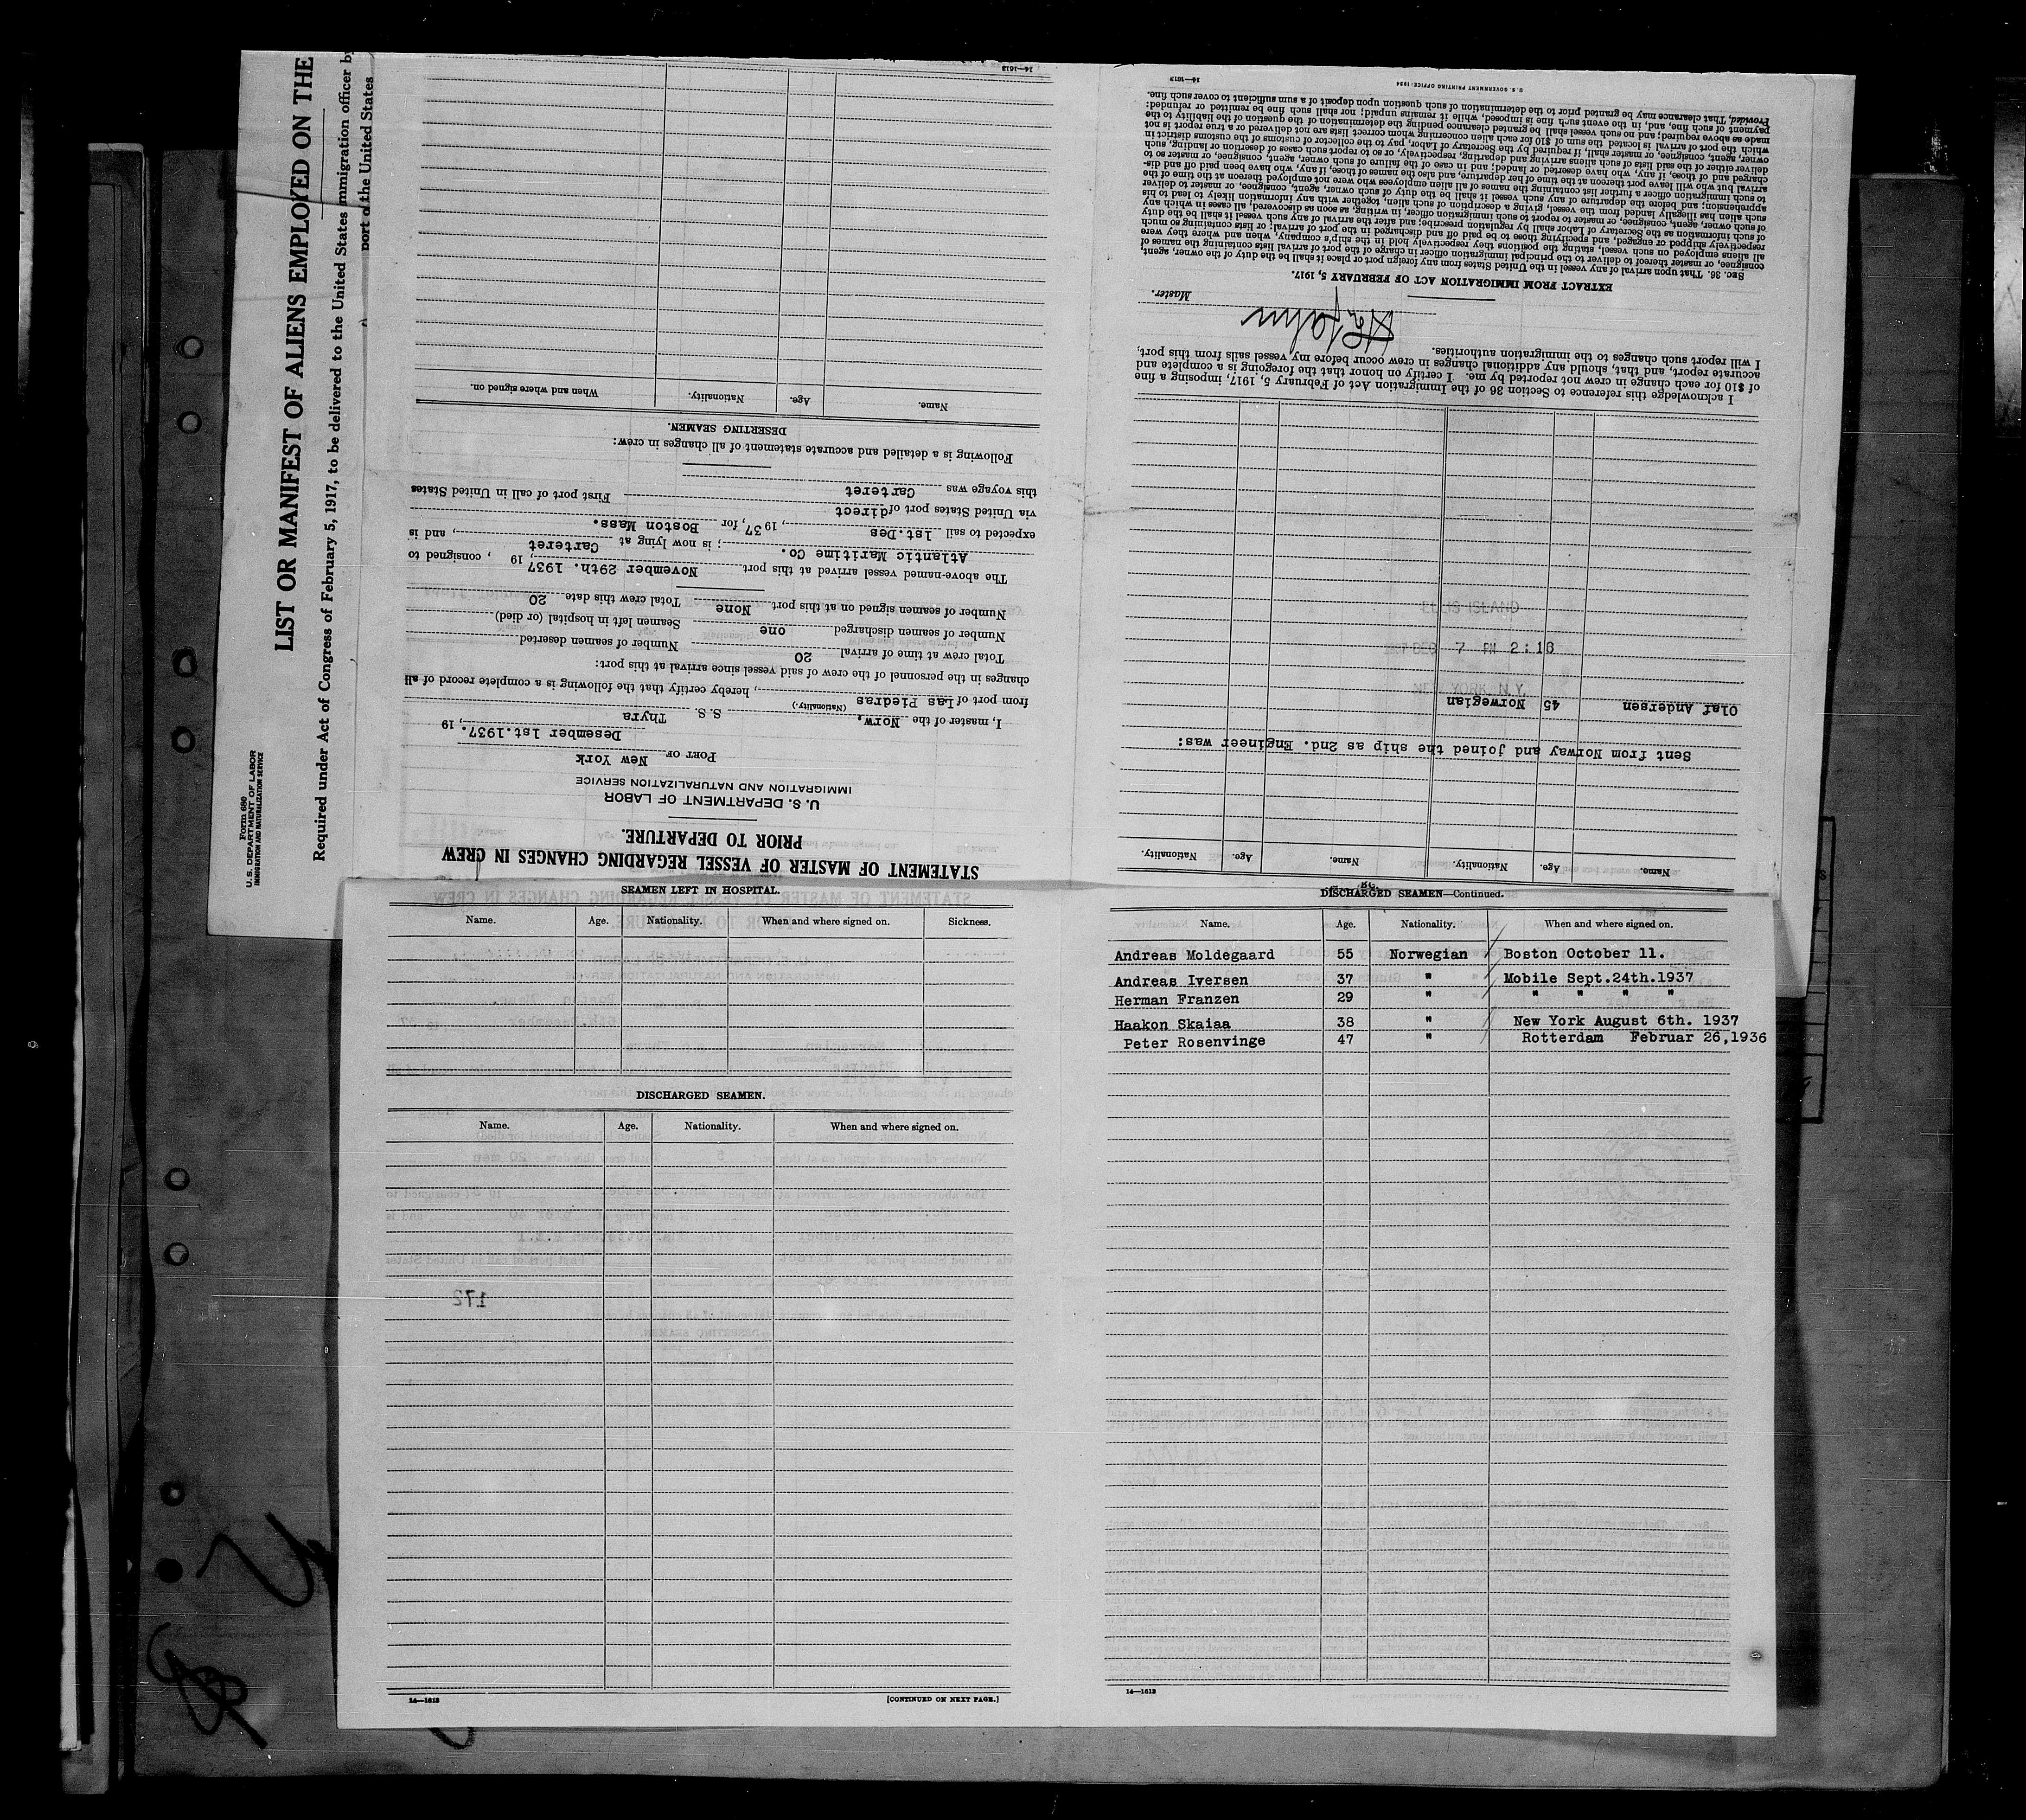 Form 680
U. S. DEPARTMENT OF LABOR
IMMIGRATION AND NATURALIZATION SERVICE
LIST OR MANIFEST OF ALIENS EMPLOYED ON THE
Required under Act of Congress of February 5, 1917, to be delivered to the United States immigration officer by
port of the United States
STATEMENT OF MASTER OF VESSEL REGARDING CHANGES IN CREW
PRIOR TO DEPARTURE.
U. S. DEPARTMENT OF LABOR
IMMIGRATION AND NATURALIZATION SERVICE
PORT OF New York
Desember 1st.1937., 19
I, master of the Norw, (Nationality.) S. S. Thyra
from port of Las Piedras, hereby certify that the following is a complete record of all
changes in the personnel of the crew of said vessel since arrival at this port:
Total crew at time of arrival 20 Number of seamen deserted
Number of seamen discharged one Seamen left in hospital (or died)
Number of seamen signed on at this port None Total crew this date 20
The above-named vessel arrived at this port November 29th. 1937, 19 , consigned to
Atlantic Maritime Co. ; is now lying at Carteret, and is
expected to sail 1st.Des, 1937, for Boston Mass.
via United States port of direct
this voyage was Carteret First port of call in United States
Following is a detailed and accurate statement of all changes in crew:
DESERTING SEAMEN.
Name. Age. Nationality. When and where signed on.
14—1613
Name. Age. Nationality. Name. Age. Nationality.
Sent from Norway and joined the ship as 2nd. Engineer was:
Olaf Andersen 45 Norwegian
NEW YORK, N.Y.
DEC 7 PM 2:16
ELLIS ISLAND
I acknowledge this reference to Section 36 of the Immigration Act of February 5, 1917, imposing a fine
of $10 for each change in crew not reported by me. I certify on honor that the foregoing is a complete and
accurate report, and that, should any additional changes in crew occur before my vessel sails from this port,
I will report such changes to the immigration authorities.
Master.
EXTRACT FROM IMMIGRATION ACT OF FEBRUARY 5, 1917.
SEC. 36. That upon arrival of any vessel in the United States from any foreign port or place it shall be the duty of the owner, agent,
consignee, or master thereof to deliver to the principal immigration officer in charge of the port of arrival lists containing the names of
all aliens employed on such vessel, stating the positions they respectively hold in the ship's company, when and where they were
respectively shipped or engaged, and specifying those to be paid off and discharged in the port of arrival; or lists containing so much
of such information as the Secretary of Labor shall by regulation prescribe; and after the arrival of any such vessel it shall be the duty
of such owner, agent, consignee, or master to report to such immigration officer, in writing, as soon as discovered, all cases in which any
such alien has illegally landed from the vessel, giving a description of such alien, together with any information likely to lead to his
apprehension; and before the departure of any such vessel it shall be the duty of such owner, agent, consignee, or master to deliver
to such immigration officer a further list containing the names of all alien employees who were not employed thereon at the time of the
arrival but who will leave port thereon at the time of her departure, and also the names of those, if any, who have been paid off and dis-
charged and of those, if any, who have deserted or landed; and in case of the failure of such owner, agent, consignee, or master so to
deliver either of the said lists of such aliens arriving and departing, respectively, or so to report such cases of desertion or landing, such
owner, agent, consignee, or master shall, if required by the Secretary of Labor, pay to the collector of customs of the customs district in
which the port of arrival is located the sum of $10 for each alien concerning whom correct lists are not delivered or a true report is not
made as above required; and no such vessel shall be granted clearance pending the determination of the question of the liability to the
payment of such fine, and, in the event such fine is imposed, while it remains unpaid; nor shall such fine be remitted or refunded:
Provided, That clearance may be granted prior to the determination of such question upon deposit of a sum sufficient to cover such fine.
14—1613
U. S. GOVERNMENT PRINTING OFFICE: 1934
SEAMEN LEFT IN HOSPITAL.
Name. Age. Nationality. When and where signed on. Sickness.
DISCHARGED SEAMEN.
Name. Age. Nationality. When and where signed on.
172
14—1613
[CONTINUED ON NEXT PAGE.]
DISCHARGED SEAMEN—Continued.
Name. Age. Nationality. When and where signed on.
Andreas Moldegaard 55 Norwegian Boston October 11.
Andreas Iversen 37 " Mobile Sept.24th.1937
Herman Franzen 29 " " " " "
Haakon Skaiaa 38 " New York August 6th. 1937
Peter Rosenvinge 47 " Rotterdam Februar 26,1936
14—1613